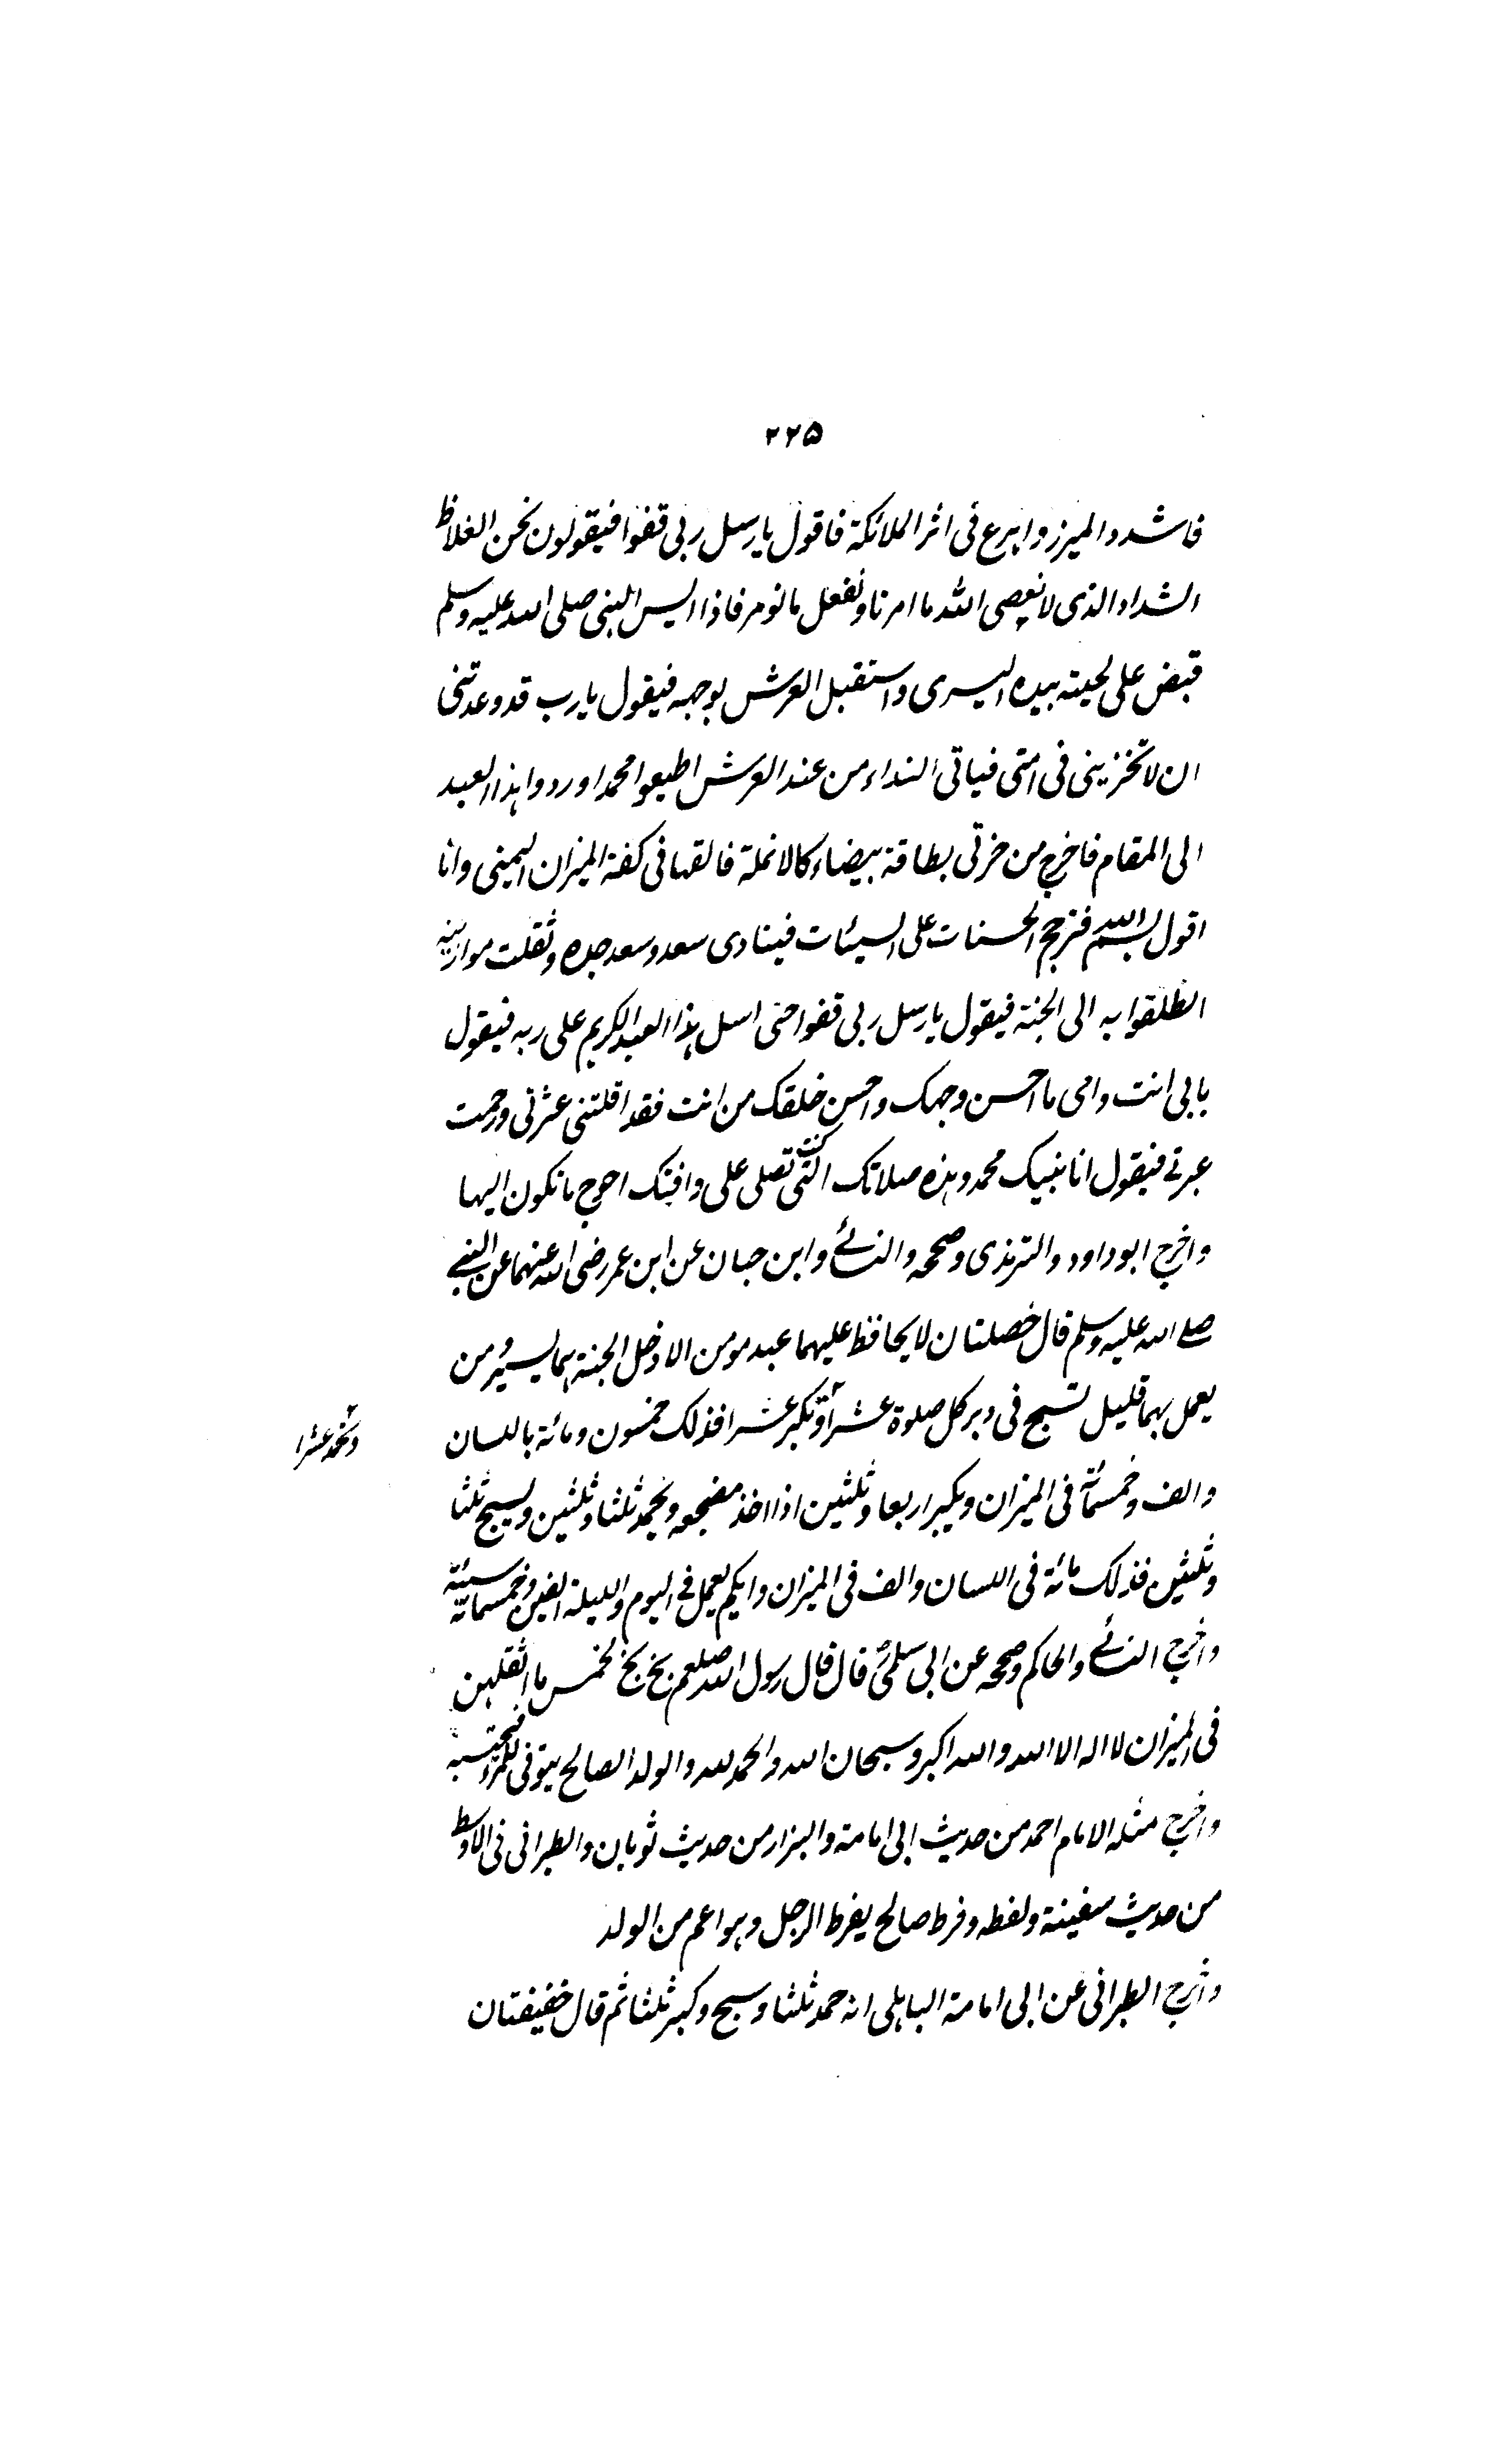 ۲۲۵
فاشدد المیزر واہرع فی اثر الملائکة فاقول یا رسل ربی قفوا فیقولون نحن الغلاظ
الشداد الذی لا نعصی اللہ ما امرنا ونفعل ما نومر فاذا الیس النبی صلی اللہ علیہ وسلم
قبض علی لحیتہ بیدہ الیسری واستقبل العرش بوجہہ فیقول یا رب قد وعدتنی
ان لا تخزینی فی امتی فیاتی النداء من عند العرش اطیعوا محمدا وردوا ہذا العبد
الی المقام فاخرج من حزتی بطاقة بیضاء کالانملة فالقہا فی کفة المیزان الیمنی وانا
اقول بسم اللہ فترجح الحسنات علی السیئات فینادی سعد وسعد جدہ وثقلت موازینہ
انطلقوا بہ الی الجنة فیقول یا رسل ربی قفوا حتی اسل ہذا العبد الکریم علی ربہ فیقول
بابی انت وامی ما احسن وجہک واحسن خلقک من انت فقد اقلتنی عثرتی ورحمت
عبرتے فیقول انا نبیک محمد وہذہ صلاتک التی کنت تصلی علی وافتک احوج ما تکون الیہا
واخرج ابو داود والترمذی وصححہ والنسائے وابن حبان عن ابن عمر رضی اللہ عنہما عن النبے
صلے اللہ علیہ وسلم قال خصلتان لا یحافظ علیہما عبد مومن الا دخل الجنة ہما یسیر ومن
یعمل بہما قلیل تسبح فی دبر کل صلوة عشرا وتکبر عشرا فذلک خمسون ومائة باللسان
وتحمد عشرا
والف وخمسمائة فی المیزان ویکبر اربعا وثلثین اذا اخذ مضجعہ ویحمد ثلثا وثلثین ویسبح ثلثا
وثلثین فذلک مائة فی اللسان والف فی المیزان وایکم یعمل فے الیوم واللیلة الفین وخمسمائة سیئة
واخرج النسائے والحاکم وصححہ عن ابی سلمی قال قال رسول اللہ صلعم بخ بخ لخمس ما اثقلہن
فی المیزان لا الہ الا اللہ واللہ اکبر وسبحان اللہ والحمد للہ والولد الصالح یتوفی للمرء فیحتسبہ
واخرج مثلہ الامام احمد من حدیث ابی امامة والبزار من حدیث ثوبان والطبرانی فی الاوسط
من حدیث سفینة ولفظہ وفرط صالح یفرط الرجل وہو اعم من الولد
واخرج الطبرانی عن ابی امامة الباہلی انہ حمد ثلثا وسبح وکبر ثلثا ثم قال خفیفتان